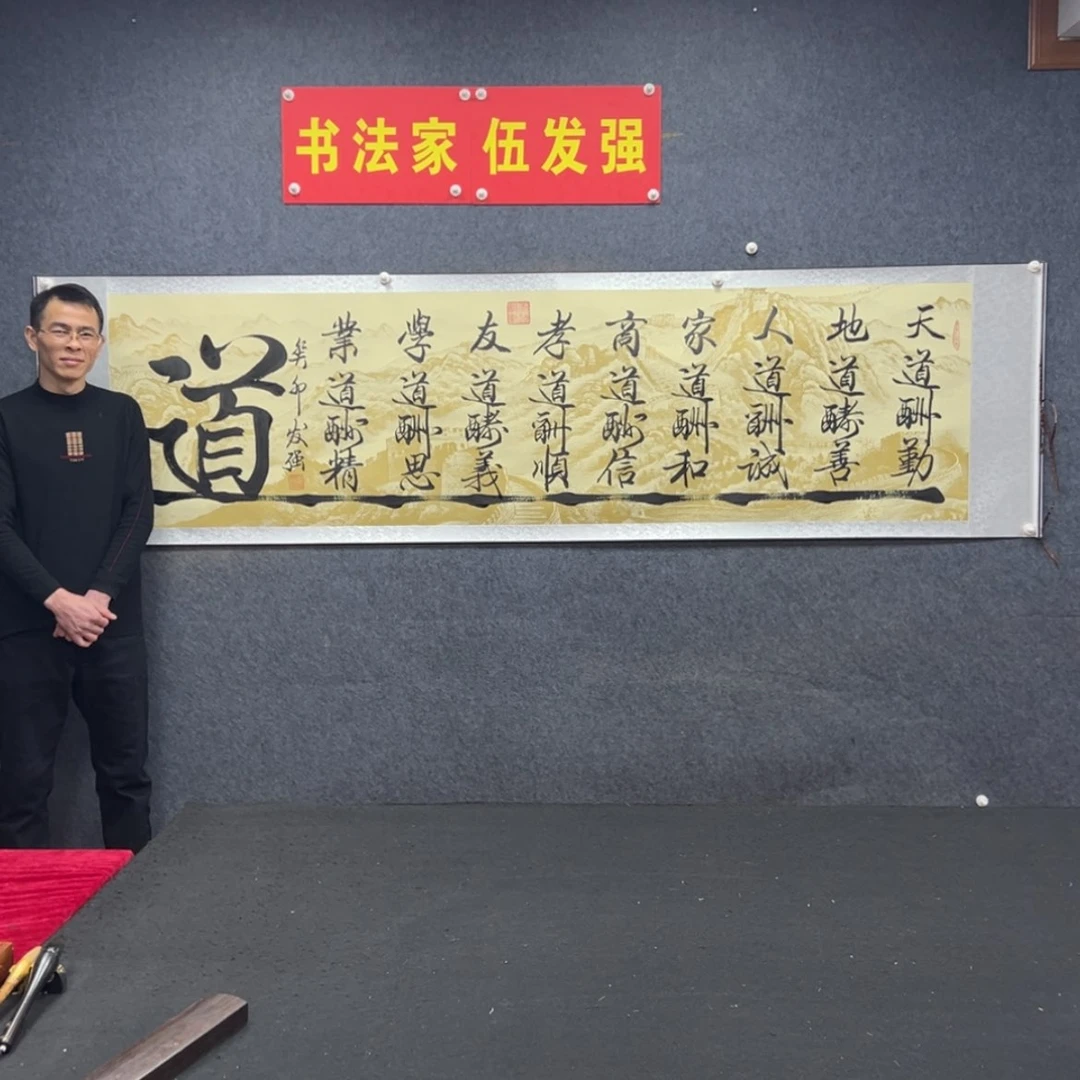 书法家 伍发强
天道酬勤
地道酬善
人道酬誠
家道酬和
商道酬信
孝道酬順
友道酬義
學道酬思
業道酬精
癸卯发强
道